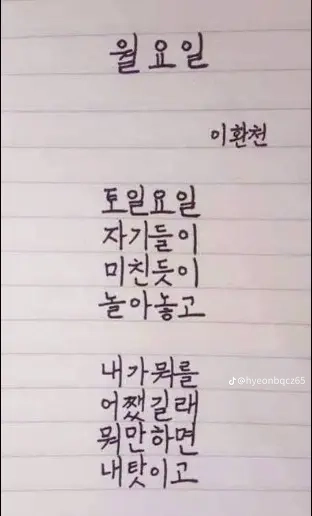 월요일
이환천
토일요일
자기들이
미친듯이
놀아놓고
내가뭐를
어쨌길래
뭐만하면
내탓이고
@hyeonbqcz65